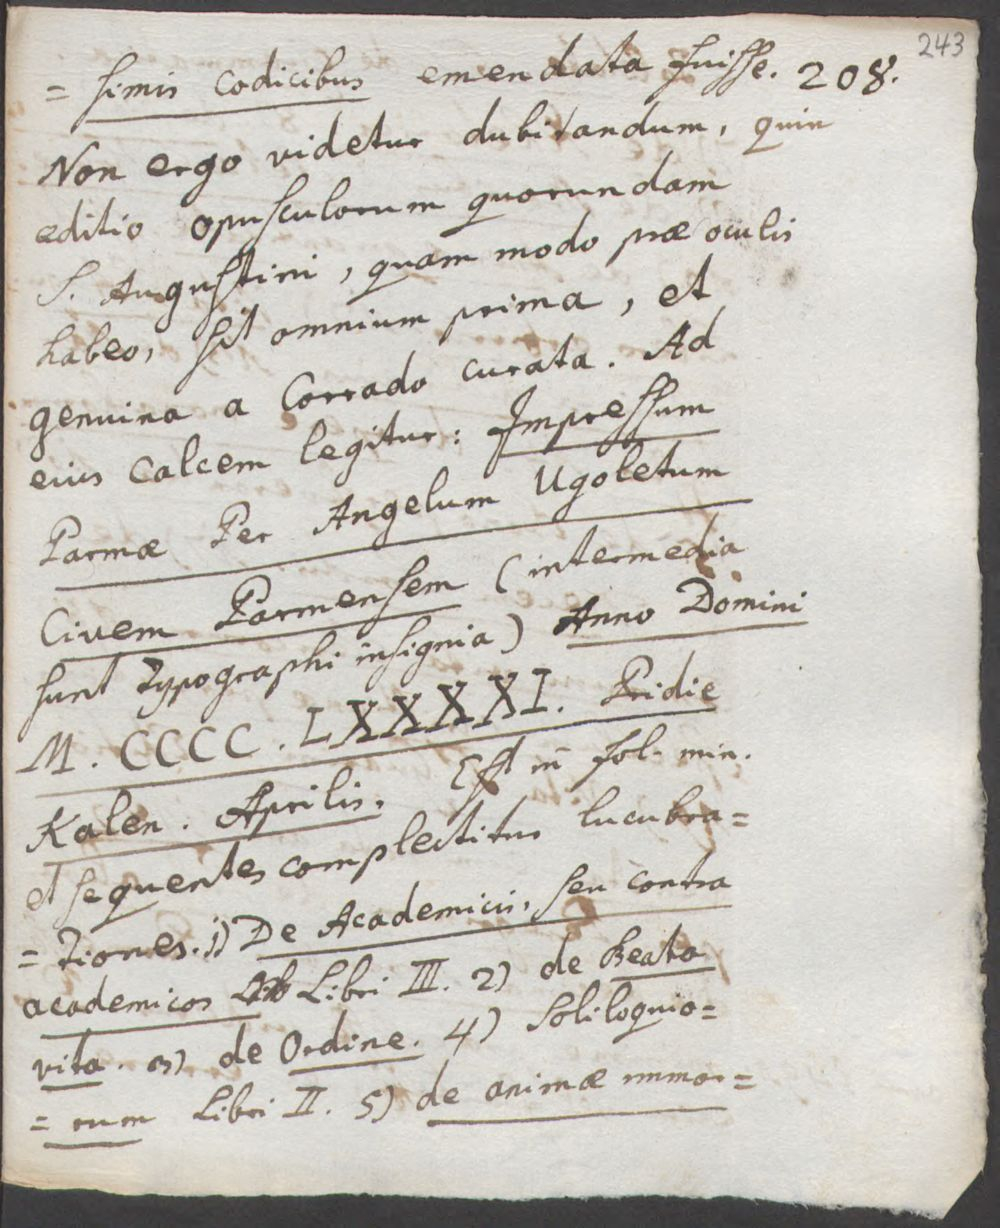 243
= simis codicibus emendata fuisse. 208.
Non ergo videtur dubitandum, quin
editio opusculorum quorundam
S. Augustini, quam modo præ oculis
habeo, sit omnium prima, et
genuina a Corrado curata. Ad
eius calcem legitur: Impressum
Parmæ Per Angelum Ugoletum
Civem Parmensem (intermedia
sunt Typographi insignia) Anno Domini
M. CCCC. LXXXXI. Pridie
Kalen. Aprilis. Est in fol. min.
et sequentes complectitur lucubra=
=tiones. 1) De Academicis, seu contra
academicos Libri III. 2) de Beata
vita. 3) de Ordine. 4) Soliloquio=
=rum Libri II. 5) de animæ immor=